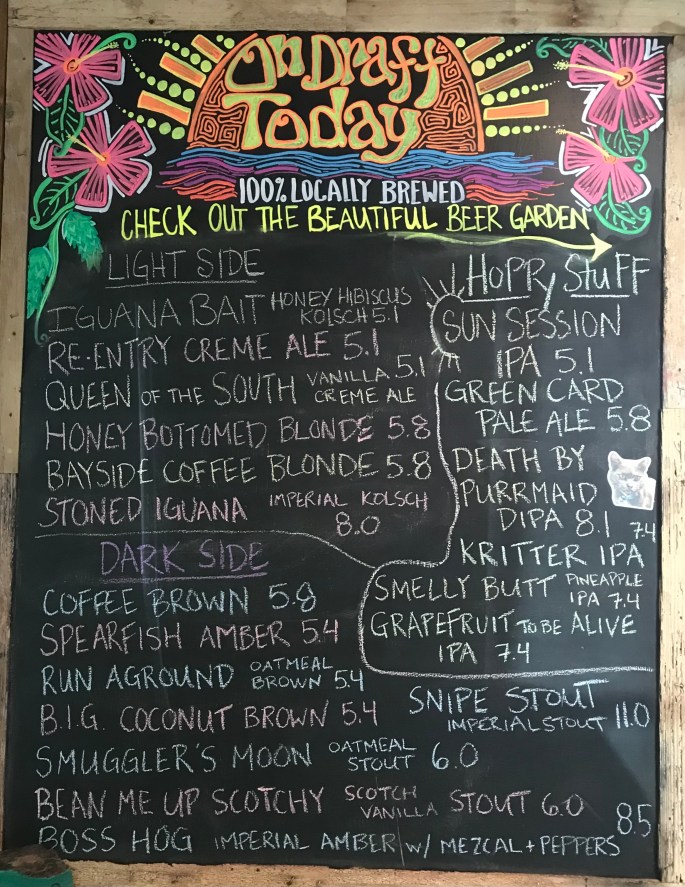 On Draft
Today
100% LOCALLY BREWED
CHECK OUT THE BEAUTIFUL BEER GARDEN
LIGHT SIDE
IGUANA BAIT HONEY HIBISCUS
KOLSCH 5.1
RE-ENTRY CREME ALE 5.1
QUEEN OF THE SOUTH VANILLA 5.1
CREME ALE
HONEY BOTTOMED BLONDE 5.8
BAYSIDE COFFEE BLONDE 5.8
STONED IGUANA IMPERIAL KOLSCH
8.0
HOPPY STUFF
SUN SESSION
IPA 5.1
GREEN CARD
PALE ALE 5.8
DEATH BY
PURRMAID
DIPA 8.1
7.4
KRITTER IPA
SMELLY BUTT PINEAPPLE
IPA 7.4
GRAPEFRUIT TO BE ALIVE
IPA 7.4
DARK SIDE
COFFEE BROWN 5.8
SPEARFISH AMBER 5.4
RUN AGROUND OATMEAL
BROWN 5.4
B.I.G. COCONUT BROWN 5.4
SNIPE STOUT
IMPERIAL STOUT 11.0
SMUGGLER'S MOON OATMEAL
STOUT 6.0
BEAN ME UP SCOTCHY SCOTCH
VANILLA STOUT 6.0
8.5
BOSS HOG IMPERIAL AMBER w/ MEZCAL + PEPPERS